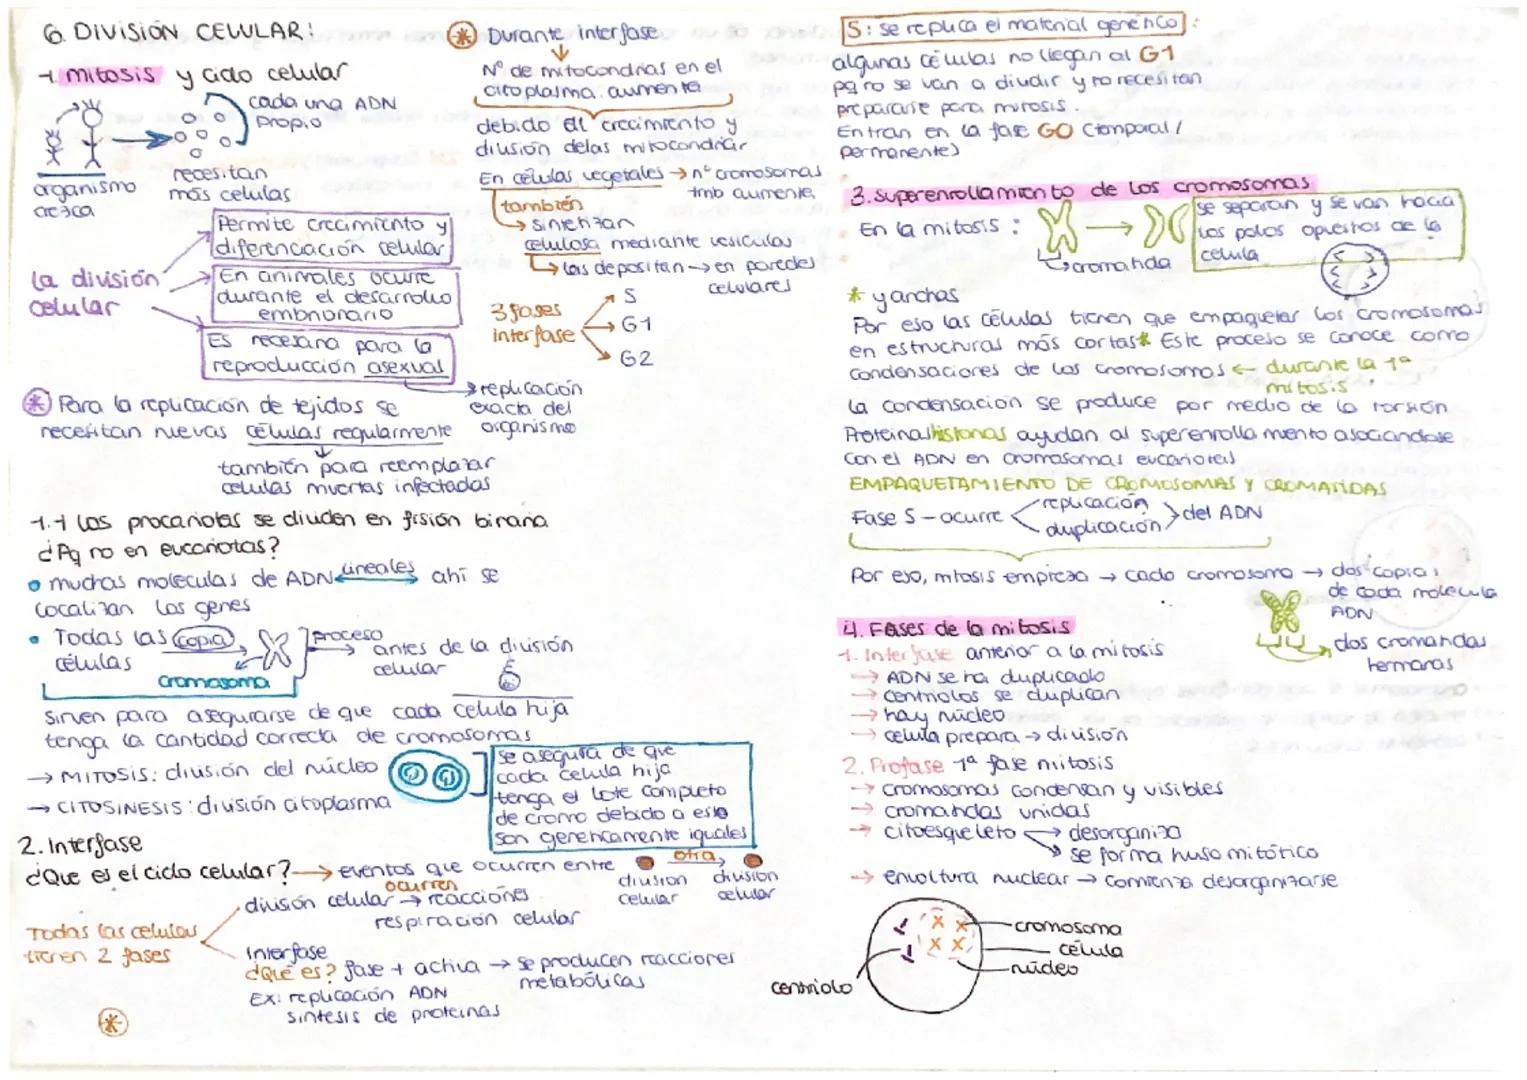 6. DIVISIÓN CELULAR:
1. mitosis y ciclo celular
cada una ADN
propio
organismo
crezca
necesitan
más celulas
la división
celular
Permite crecimiento y
diferenciación celular
En animales ocurre
durante el desarrollo
embrionario
Es necesaria para la
reproducción asexual
replicación
exacta del
organismo
* Para la replicación de tejidos se
necesitan nuevas células regularmente
también para reemplazar
celulas muertas infectadas
1.1 Los procariotas se dividen en fisión binaria
¿Pq no en eucariotas?
• muchas moleculas de ADN lineales ahí se
localizan los genes
• Todas las copia
células
cromosoma
proceso
antes de la división
celular
Sirven para asegurarse de que cada celula hija
tenga la cantidad correcta de cromosomas
→ MITOSIS: división del núcleo
→ CITOSINESIS: división citoplasma
se asegura de que
cada celula hija
tenga el lote completo
de cromo debido a esto
son geneticamente iguales
2. Interfase
¿Que es el ciclo celular? → eventos que ocurren entre
división
celular
otra
división
celular
Todas las celulas
tienen 2 fases
división celular ocurren → reacciones
respiración celular
Interfase
¿Qué es? fase + activa → se producen reacciones
metabólicas
Ex: replicación ADN
sintesis de proteinas
*
* Durante interfase
Nº de mitocondrias en el
citoplasma. aumenta
debido al crecimiento y
división de las mitocondrias
En células vegetales → nº cromosomas
tmb aumenta
también
sintetizan
celulosa mediante vesiculas
las depositan → en paredes
celulares
3 fases
interfase
S
G1
G2
S: se replica el material genético:
algunas células no llegan al G1
pq no se van a dividir y no necesitan
prepararse para mitosis.
Entran en la fase G0 (temporal/
permanente)
3. superenrollamiento de los cromosomas
En la mitosis:
cromatida
se separan y se van hacia
los polos opuestos de la
celula
* y anchas
Por eso las células tienen que empaquetar los cromosomas
en estructuras más cortas* Este proceso se conoce como
condensaciones de los cromosomas ← durante la 1ª
mitosis
la condensación se produce por medio de la torsión
Proteinas histonas ayudan al superenrollamiento asociandose
con el ADN en cromosomas eucariotas
EMPAQUETAMIENTO DE CROMOSOMAS Y CROMATIDAS
Fase S - ocurre
replicación
duplicación
del ADN
Por eso, mitosis empieza → cada cromosoma → dos copias
de cada molecula
ADN
dos cromatidas
hermanas
4. Fases de la mitosis
1. Interfase anterior a la mitosis
→ ADN se ha duplicado
→ centriolos se duplican
→ hay núcleo
→ celula prepara → división
2. Profase 1ª fase mitosis
→ cromosomas condensan y visibles
→ cromatidas unidas
→ citoesqueleto → desorganiza
se forma huso mitótico
→ envoltura nuclear → comienza desorganizarse
cromosoma
célula
núcleo
centriolo